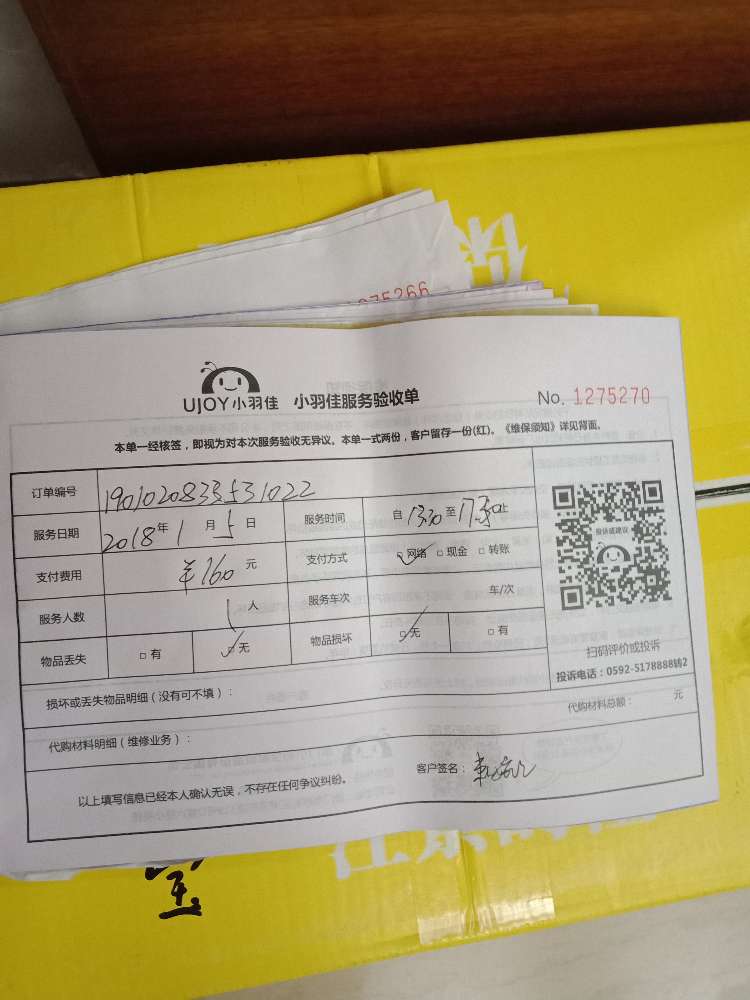 1275266
UJOY小羽佳 小羽佳服务验收单 No. 1275270
本单一经核签，即视为对本次服务验收无异议。本单一式两份，客户留存一份(红)。《维保须知》详见背面。
订单编号
服务日期 2018年 1 月 5 日 服务时间 自 1330 至 1730 止
支付费用 ¥160 元 支付方式 网络 □ 现金 □ 转账
服务人数 1 人 服务车次 车/次
物品丢失 □ 有 □ 无 物品损坏 □ 无 □ 有
投诉或建议
扫码评价或投诉
投诉电话：0592-5178888转2
损坏或丢失物品明细（没有可不填）：
代购材料明细（维修业务）： 代购材料总额： 元
以上填写信息已经本人确认无误，不存在任何争议纠纷。 客户签名：